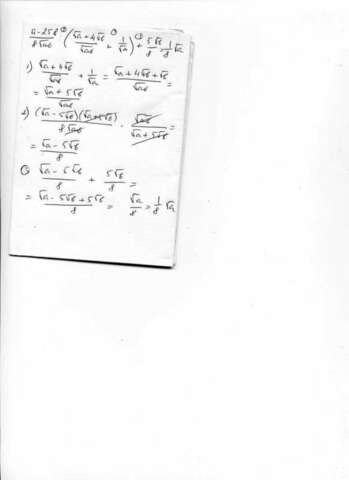 ② ① ③
(a-25b)/(8√ab) : ((√a+4√b)/√ab + 1/√a) + 5√b/8 = 1/8 √a
1) (√a+4√b)/√ab + 1/√a = (√a+4√b+√b)/√ab =
= (√a+5√b)/√ab
2) (√a-5√b)(√a+5√b)/(8√ab) · √ab/(√a+5√b) =
= (√a-5√b)/8
③ (√a-5√b)/8 + 5√b/8 =
= (√a-5√b+5√b)/8 = √a/8 = 1/8 √a